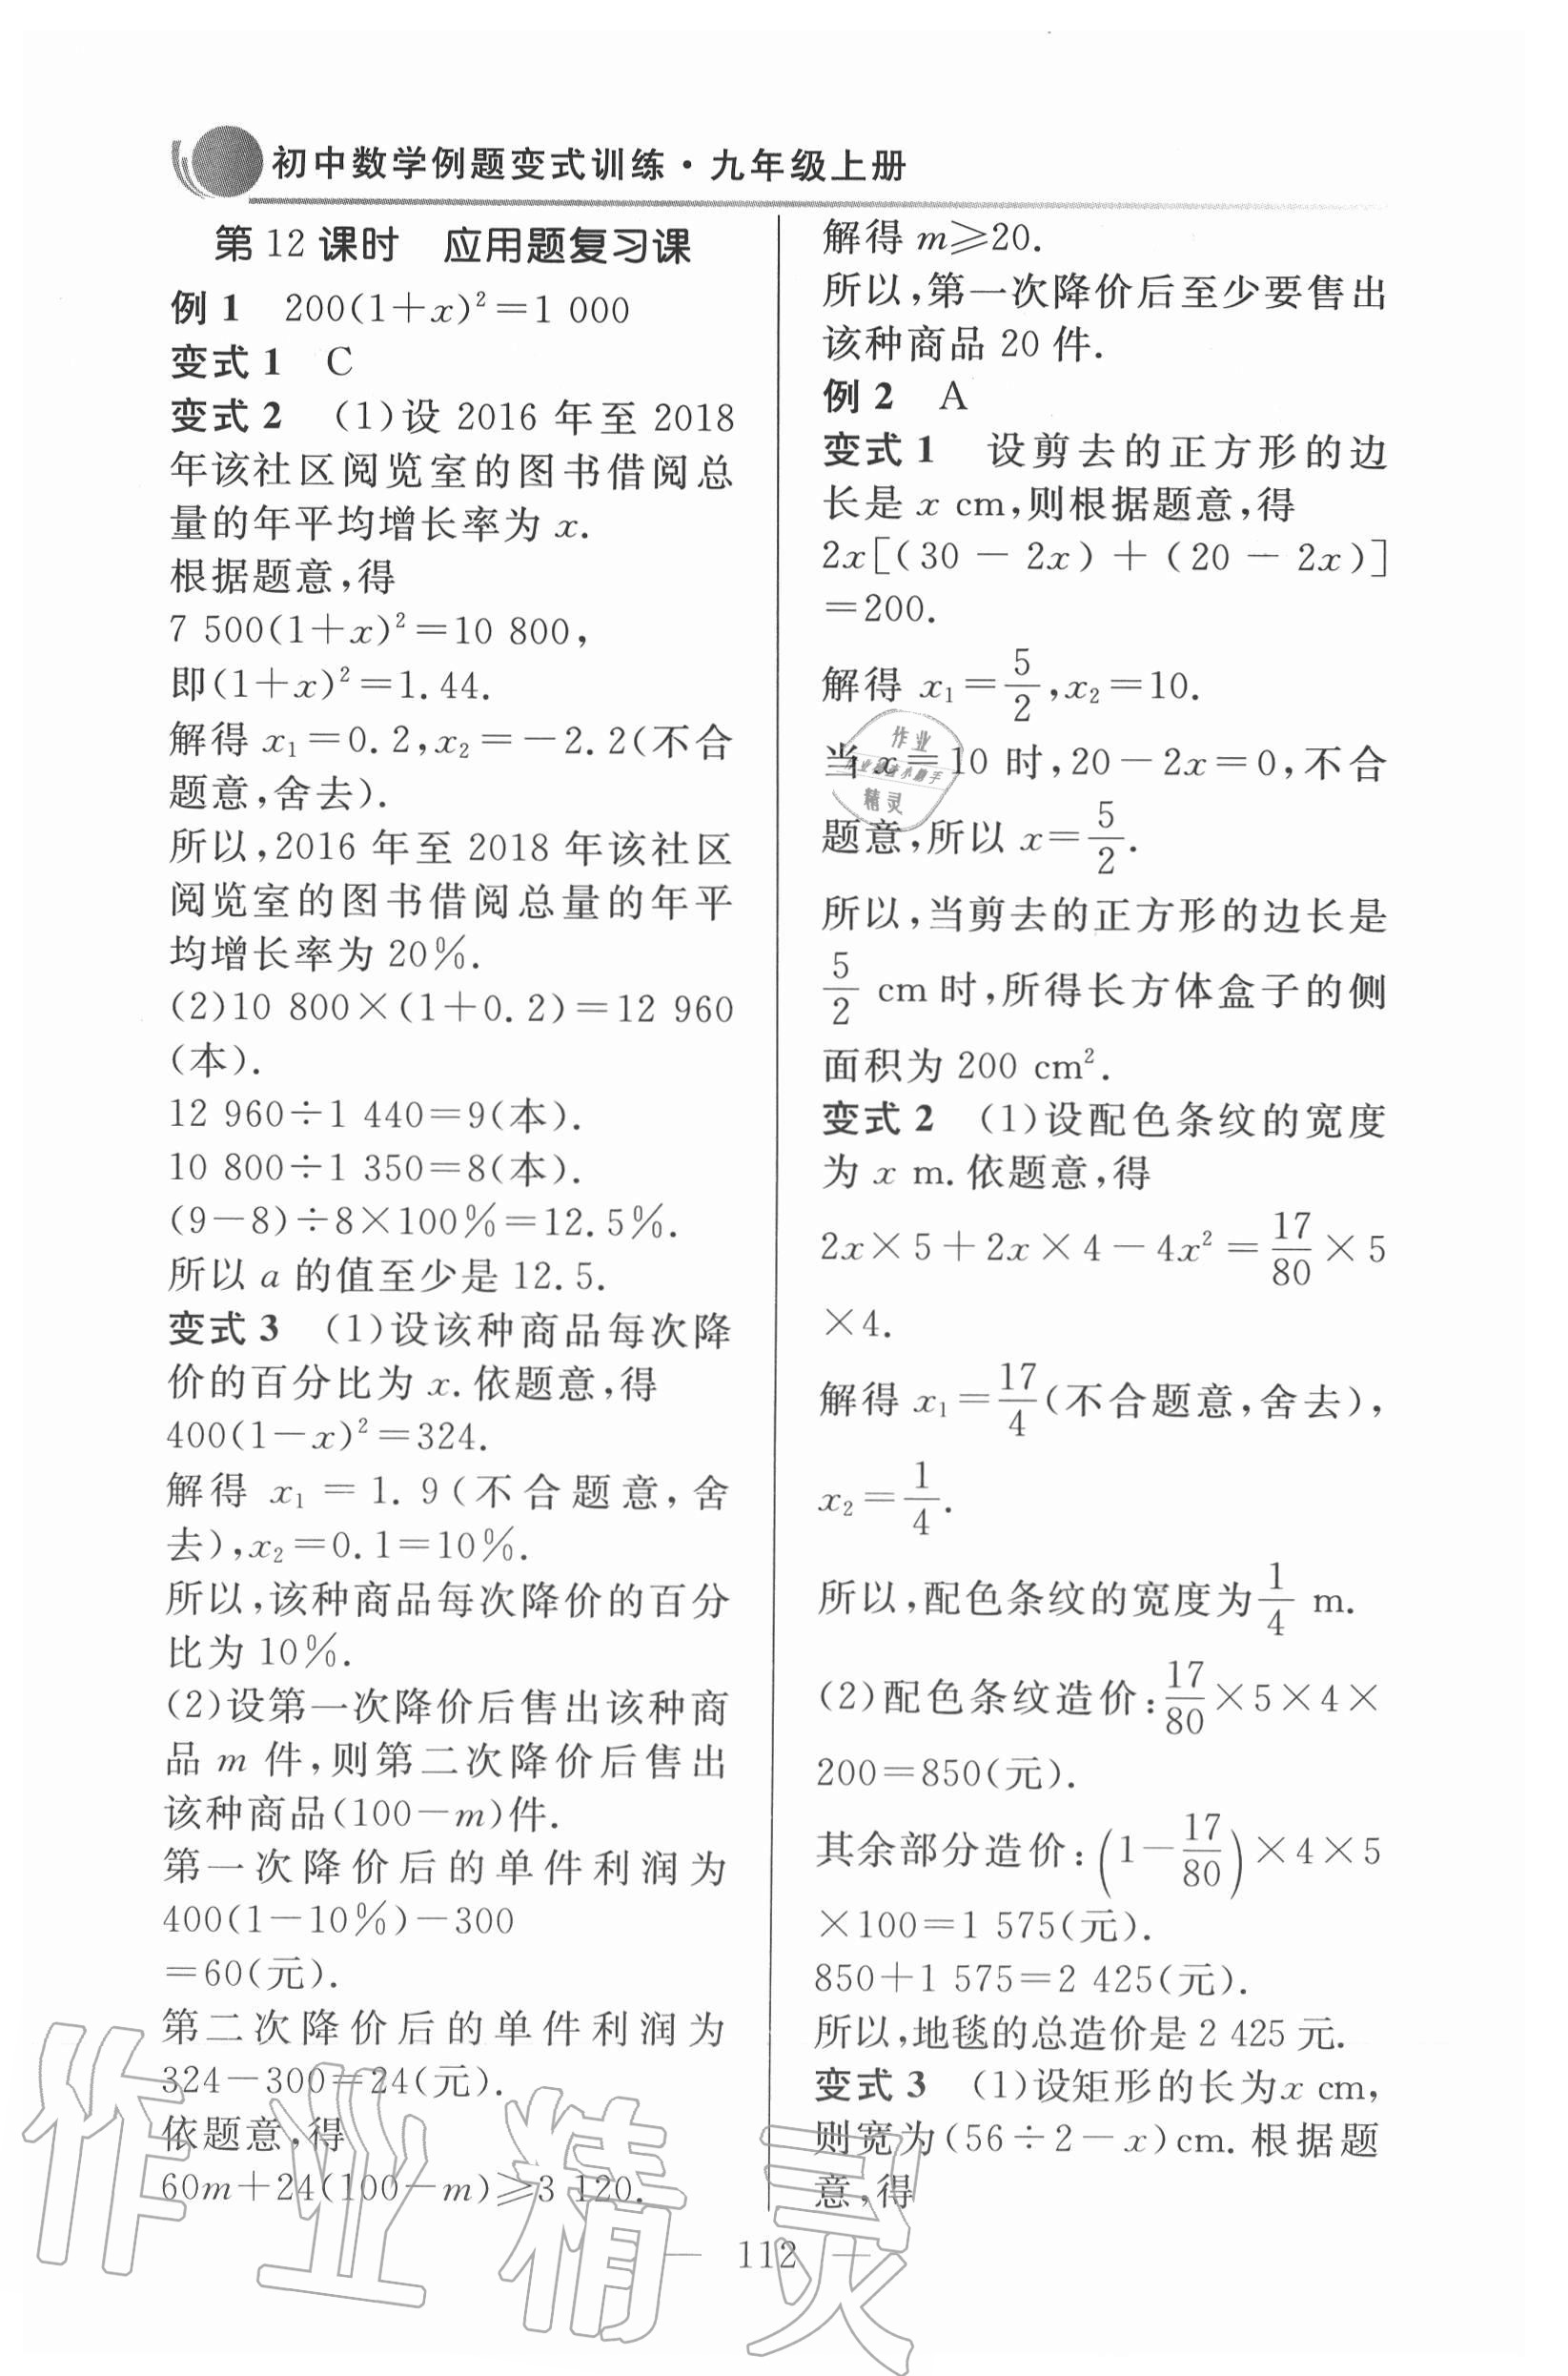 初中数学例题变式训练·九年级上册
第12课时 应用题复习课
例1 200(1+x)²=1 000
变式1 C
变式2 (1)设 2016 年至 2018
年该社区阅览室的图书借阅总
量的年平均增长率为 x.
根据题意,得
7 500(1+x)²=10 800,
即(1+x)²=1.44.
解得 x₁=0.2,x₂=-2.2(不合
题意,舍去).
所以,2016 年至 2018 年该社区
阅览室的图书借阅总量的年平
均增长率为 20%.
(2)10 800×(1+0.2)=12 960
(本).
12 960÷1 440=9(本).
10 800÷1 350=8(本).
(9-8)÷8×100%=12.5%.
所以 a 的值至少是 12.5.
变式3 (1)设该种商品每次降
价的百分比为 x.依题意,得
400(1-x)²=324.
解得 x₁=1.9(不合题意,舍
去),x₂=0.1=10%.
所以,该种商品每次降价的百分
比为 10%.
(2)设第一次降价后售出该种商
品 m 件,则第二次降价后售出
该种商品(100-m)件.
第一次降价后的单件利润为
400(1-10%)-300
=60(元).
第二次降价后的单件利润为
324-300=24(元).
依题意,得
60m+24(100-m)≥3 120.
解得 m≥20.
所以,第一次降价后至少要售出
该种商品 20 件.
例2 A
变式1 设剪去的正方形的边
长是 x cm,则根据题意,得
2x[(30-2x)+(20-2x)]
=200.
解得 x₁=5/2,x₂=10.
当 x=10 时,20-2x=0,不合
题意,所以 x=5/2.
所以,当剪去的正方形的边长是
5/2 cm 时,所得长方体盒子的侧
面积为 200 cm².
变式2 (1)设配色条纹的宽度
为 x m.依题意,得
2x×5+2x×4-4x²=17/80×5
×4.
解得 x₁=17/4(不合题意,舍去),
x₂=1/4.
所以,配色条纹的宽度为1/4 m.
(2)配色条纹造价:17/80×5×4×
200=850(元).
其余部分造价:(1-17/80)×4×5
×100=1 575(元).
850+1 575=2 425(元).
所以,地毯的总造价是 2 425 元.
变式3 (1)设矩形的长为x cm,
则宽为(56÷2-x)cm.根据题
意,得
— 112 —
作业
精灵
作业精灵